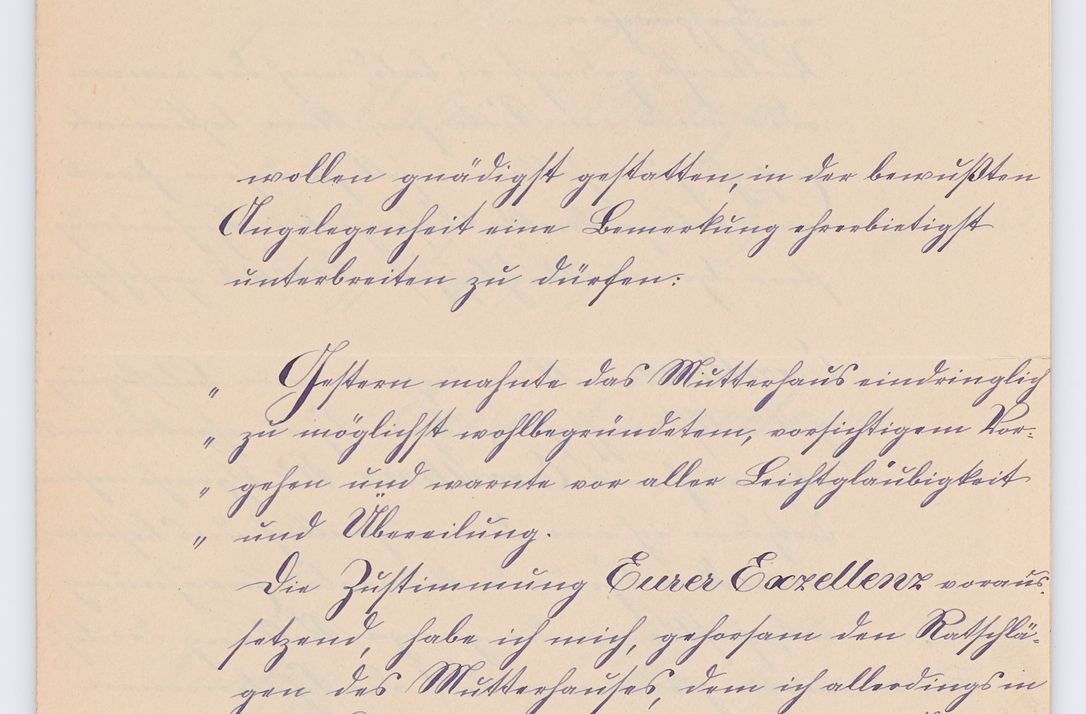 wollen gnädigst gestatten, in der bewußten
Angelegenheit eine Bemerkung ehrerbietigst
unterbreiten zu dürfen:
„ Gestern mahnte das Mutterhaus eindringlich
„ zu möglichst wohlbegründetem, vorsichtigem Vor-
„ gehen und warnte vor aller Leichtgläubigkeit
„ und Übereilung.
Die Zustimmung Eurer Exzellenz voraus-
setzend, habe ich mich, gehorsam den Ratschlä-
gen des Mutterhauses, dem ich allerdings in